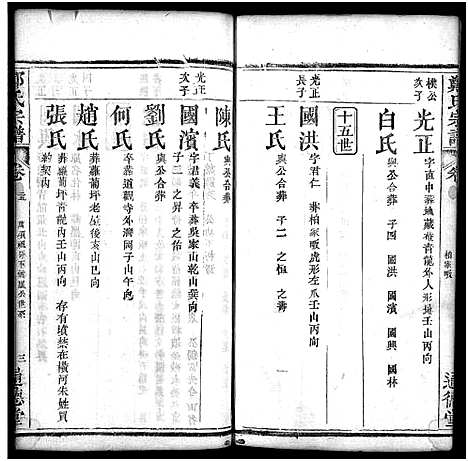 鄭氏宗譜
卷
柏家畈
通德堂
樸公次子
光正
字直中葬地藏庵青龍外人形埂壬山丙向
白氏
與公合葬 子四 國洪 國濱 國興 國林
十五世
光正長子
國洪
字君仁 葬柏家畈虎形左爪壬山丙向
王氏
與公合葬 子二 之恒 之壽
陳氏
與公合葬
光正次子
國濱
字君義 卒葬吳家山乾山巽向
子二 之昇 之佑
劉氏
與公合葬
何氏
卒葬道觀寺外灣同子山午向
趙氏
葬蘿蔔坪老屋後亥山巳向
張氏
葬蘿蔔坪青龍內壬山丙向 存有墳禁在橫河朱姓買
約契內
鄭氏宗譜
卷
三
通德堂